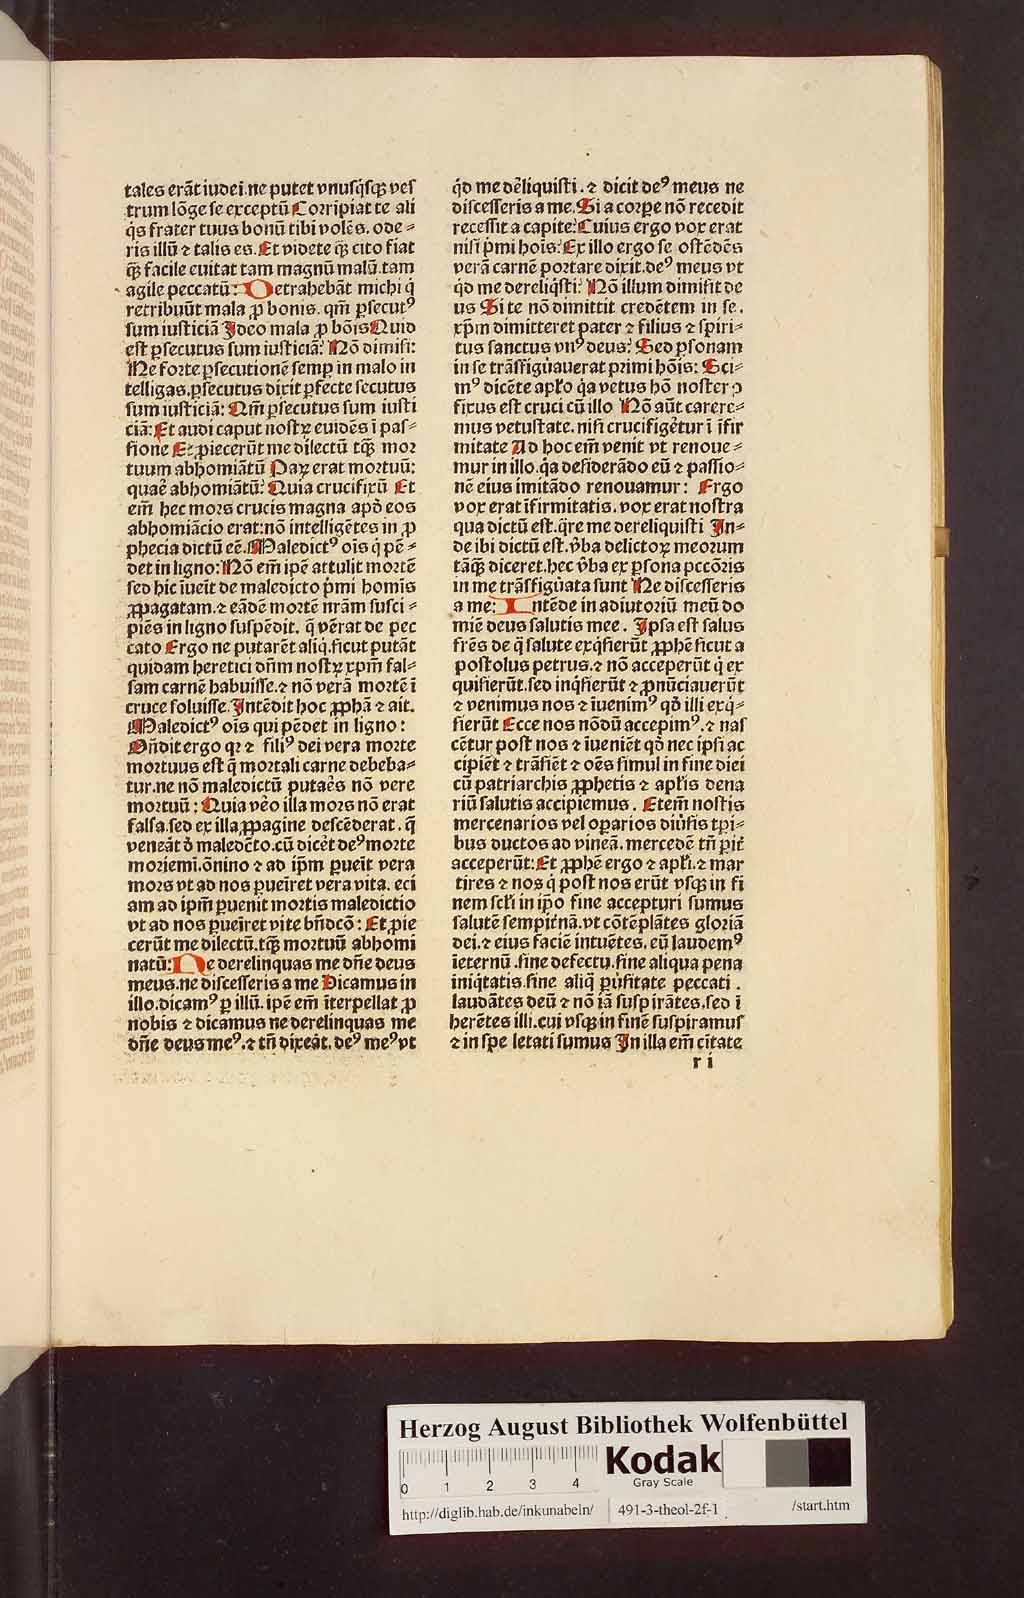 tales erāt iudei.ne putet vnusq̇sqꝫ ves
trum lōge se exceptū Corripiat te ali
q̇s frater tuus bonū tibi volēs. ode⸗
ris illū ⁊ talis es. Et videte qꝫ̄ cito fiat
qꝫ̄ facile euitat tam magnū malū.tam
agile peccatū: Detrahebāt michi q̇
retribuūt mala ꝓ bonis. qm̄ ꝑsecutꝰ
sum iusticiā Ideo mala ꝓ bōis Quid
est ꝑsecutus sum iusticiā: Nō dimisi:
Ne forte ꝑsecutionē semꝑ in malo in
telligas.ꝑsecutus dixit ꝑfecte secutus
sum iusticiā: Qm̄ ꝑsecutus sum iusti
ciā: Et audi caput nostꝝ euidēs ī pas⸗
sione Et ꝓiecerūt me dilectū tqꝫ̄ mor
tuum abhomiātū Paꝝ erat mortuū:
quaē abhomiātū: Quia crucifixū Et
em̄ hec mors crucis magna apd̄ eos
abhomiācio erat:nō intelligētes in ꝓ
phecia dictū eē. Maledictꝰ oīs q̇ pē⸗
det in ligno: Nō em̄ ipē attulit mortē
sed hic īueīt de maledicto ṗmi homīs
ꝓpagatam.⁊ eādē mortē nr̄am susci⸗
piēs in ligno suspēdit. q̄ vērat de pec
cato Ergo ne putarēt aliq̇.sicut putāt
quidam heretici dn̄m nostꝝ xpm̄ fal⸗
sam carnē habuisse.⁊ nō verā mortē ī
cruce soluisse. Intēdit hoc ꝓph̄a ⁊ ait.
Maledictꝰ oīs qui pēdet in ligno:
On̄dit ergo qꝛ ⁊ filiꝰ dei vera morte
mortuus est q̄ mortali carne debeba⸗
tur.ne nō maledictū putaēs nō vere
mortuū: Quia ve̊o illa mors nō erat
falsa.sed ex illa ꝓpagine descēderat. q̄
veneāt d̄ maledc̄to.cū dicet̄ deꝰ morte
moriemī.ōnino ⁊ ad ip̄m ꝑueīt vera
mors vt ad nos ꝑueīret vera vita. eci
am ad ip̄m ꝑuenit mortis maledictio
vt ad nos ꝑueīret vite bn̄dcō: Et ꝓie
cerūt me dilectū.tqꝫ̄ mortuū abhomi
natū: Ne derelinquas me dn̄e deus
meus.ne discesseris a me Dicamus in
illo.dicamꝰ ꝑ illū. ipē em̄ īterpellat ꝓ
nobis ⁊ dicamus ne derelinquas me
dn̄e deus meꝰ.⁊ tn̄ dixeāt. deꝰ meꝰ vt
q̇d me de̊liquisti.⁊ dicit deꝰ meus ne
discesseris a me. Si a corꝑe nō recedit
recessit a capite: Cuius ergo vox erat
nisi ṗmi hoīs: Ex illo ergo se ostēdēs
verā carnē portare dixit.deꝰ meus vt
q̇d me dereliq̇sti: Nō illum dimisit de
us Si te nō dimittit credētem in se.
xp̄m dimitteret pater ⁊ filius ⁊ spiri⸗
tus sanctus vnꝰ deus: Sed ꝑsonam
in se trāsfigu̇auerat primi hoīs: Sci⸗
mꝰ dicēte apl̄o q̇a vetus hō noster ↄ
fixus est cruci cū illo Nō aūt carere⸗
mus vetustate.nisi crucifigēt̄ur ī īfir
mitate Ad hoc em̄ venit vt renoue⸗
mur in illo.q̇a desiderādo eū ⁊ passio⸗
nē eius imitādo renouamur: Ergo
vox erat īfirmitatis.vox erat nostra
qua dictū est.q̇re me dereliquisti In⸗
de ibi dictū est. v̇ba delictoꝝ meorum
tāqꝫ̄ diceret.hec v̇ba ex ꝑsona pccōris
in me trāsfigu̇ata sunt Ne discesseris
a me: Intēde in adiutoriū meū do
mīe deus salutis mee. Ipsa est salus
frēs de q̇ salute exq̇sierūt ꝓphē sicut a
postolus petrus.⁊ nō acceperūt q̇ ex
quisierūt.sed inq̇sierūt ⁊ ꝓnūciauerūt
⁊ venimus nos ⁊ īuenimꝰ qd̄ illi exq̇⸗
sierūt Ecce nos nōdū accepimꝰ.⁊ nas
cētur post nos ⁊ īueniēt qd̄ nec ipsi ac
cipiēt ⁊ trāsiēt ⁊ oēs simul in fine diei
cū patriarchis ꝓphetis ⁊ apl̄is dena
riū salutis accipiemus. Etem̄ nostis
mercenarios vel oꝑarios diu̇sis tꝑi⸗
bus ductos ad vineā. mercedē tn̄ pīt
acceperūt: Et ꝓphē ergo ⁊ apl̄i.⁊ mar
tires ⁊ nos q̇ post nos erūt vsqꝫ in fi
nem scl̄i in ip̄o fine accepturi sumus
salutē sempit̄nā.vt cōtēplātes gloriā
dei.⁊ eius faciē intuētes.eū laudemꝰ
īeternū.sine defectu.sine aliqua pena
iniq̇tatis.sine aliq̇ ꝑu̇sitate peccati.
laudātes deū ⁊ nō iā suspirātes.sed ī
herētes illi.cui vsqꝫ in finē suspiramus
⁊ in spe letati sumus In illa em̄ cīitate
r i
Herzog August Bibliothek Wolfenbüttel
Kodak
Gray Scale
0 1 2 3 4
http://diglib.hab.de/inkunabeln/ 491-3-theol-2f-1 /start.htm